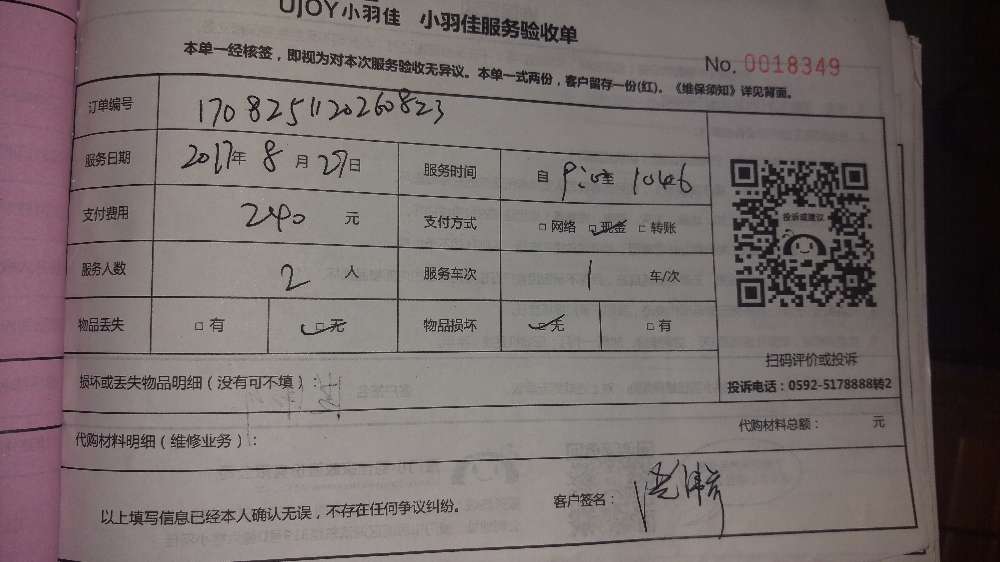 UJOY小羽佳 小羽佳服务验收单
本单一经核签，即视为对本次服务验收无异议。本单一式两份，客户留存一份(红)。《维保须知》详见背面。
No. 0018349
订单编号 1708251120260823
服务日期 2017年 8 月 27日 服务时间 自 9:00至 1046
支付费用 240 元 支付方式 □网络 □现金 □转账
服务人数 2 人 服务车次 1 车/次
物品丢失 □有 □无 物品损坏 □无 □有
投诉或建议
扫码评价或投诉
投诉电话：0592-5178888转2
损坏或丢失物品明细（没有可不填）：
代购材料明细（维修业务）： 代购材料总额： 元
以上填写信息已经本人确认无误，不存在任何争议纠纷。 客户签名：